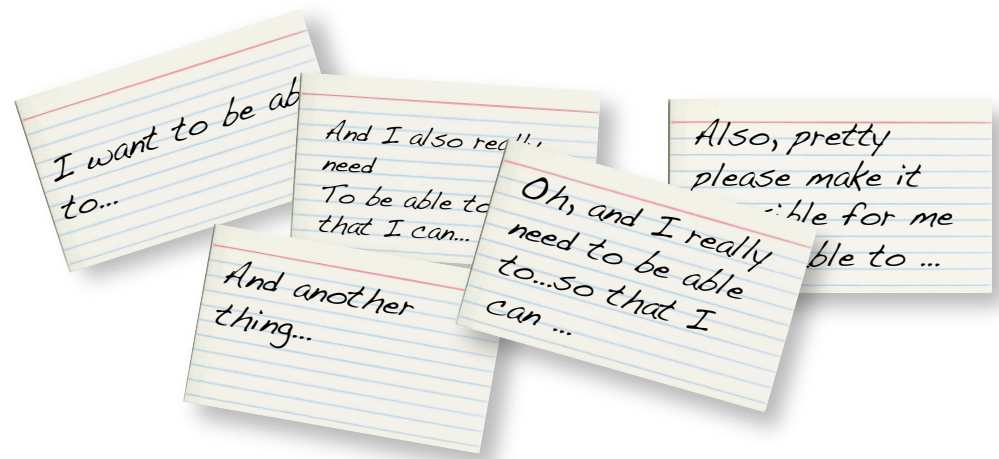 I want to be ab
to...
And I also really
need
To be able to
that I can...
And another
thing...
Oh, and I really
need to be able
to...so that I
can ...
Also, pretty
please make it
for me
to ...